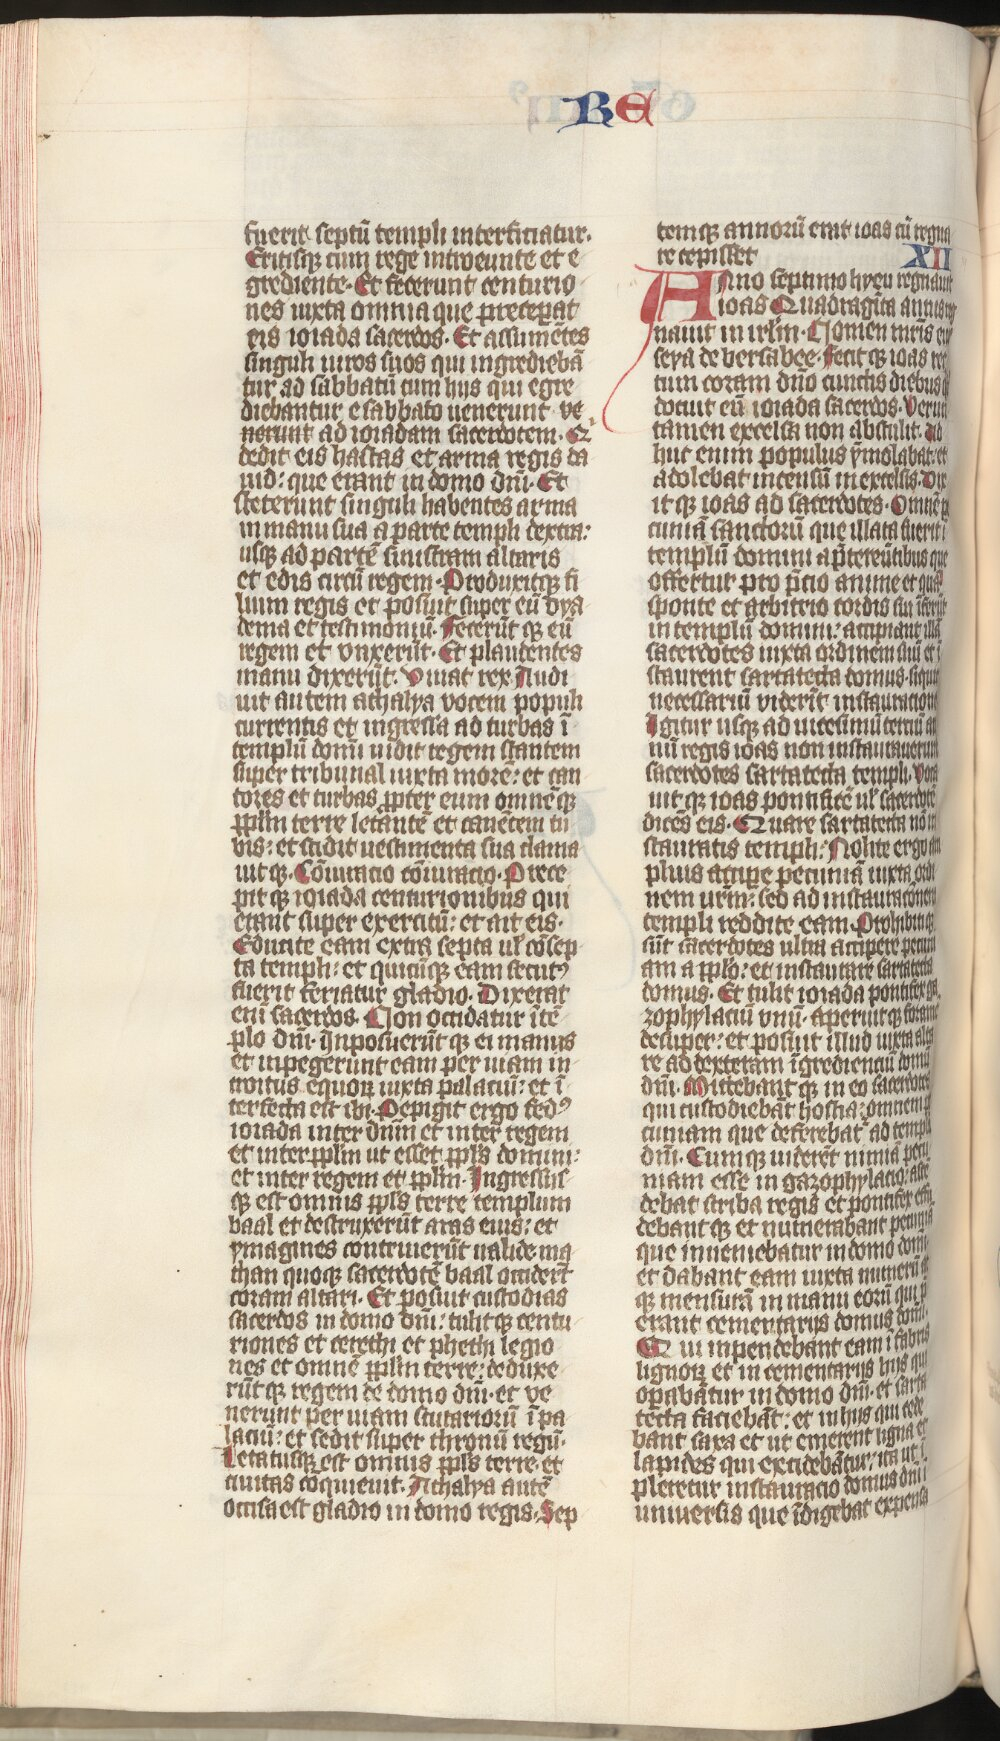 RE
fuerit septū templi interficiatur.
Eritisqꝫ cum rege introeunte et e
grediente. Et fecerunt centurio
nes iuxta omnia que preceperat
eis ioiada sacerdos. Et assumētes
singuli uiros suos qui ingrediebā
tur ad sabbatū cum hijs qui egre
diebantur e sabbato uenerunt ve
nerunt ad ioiadam sacerdotem. Q̇
dedit eis hastas et arma regis da
uid: que erant in domo dn̄i. Et
steterunt singuli habentes arma
in manu sua a parte templi dextra:
usqꝫ ad partē sinistram altaris
et edis circū regem. Produxitqꝫ fi
lium regis et posuit super eū dya
dema et testimoniū. Fecerūt qꝫ eū
regem et vnxerūt. Et plaudentes
manu dixerūt. Viuat rex. Audi
uit autem athalya vocem populi
currentis et ingressa ad turbas ī
templū domī uidit regem stantem
super tribunal iuxta morē: et can
tores et turbas ꝓpter eum omnēqꝫ
ppl̄m terre letātē et canētem tu
bis: et scidit uestimenta sua clama
uitqꝫ. Cōiuracio cōiuracio. Prece
pit qꝫ ioiada centurionibus qui
erant super exercitū: et ait eis.
Educite eam extra septa ul̄ cōsep
ta templi: et quicūqꝫ eam secutꝰ
fuerit feriatur gladio. Dixerat
enī sacerdos. Non occidatur ī tē
plo dn̄i. Inposuerūt qꝫ ei manus
et inpegerunt eam per uiam in
troitus equoꝝ iuxta palaciū: et ī
terfecta est ibi. Pepigit ergo fedꝰ
ioiada inter dn̄m et inter regem
et inter ppl̄m ut esset ppl̄s domini:
et inter regem et ppl̄m. Ingressus
qꝫ est omnis ppl̄s terre templum
baal et destruxerūt aras eius: et
ymagines contriuerūt ualide ma
than quoqꝫ sacerdotē baal occiderūt
coram altari. Et posuit custodias
sacerdos in domo dn̄i: tulitqꝫ centu
riones et cerethi et phethi legio
nes et omnē ppl̄m terre: deduxe
rūt qꝫ regem de domo dn̄i. et ve
nerunt per uiam scutariorū ī pa
laciū: et sedit super thronū regū.
Letatusqꝫ est omnis ppl̄s terre et
ciuitas cōquieuit. Athalya autē
occisa est gladio in domo regis. Sep
temqꝫ annorū erat ioas cū regna
re cepisset XII
Anno septimo hyeu regnauit
ioas Quadragīta annis reg
nauit in irl̄m. Nomen mr̄is eiꝰ
seya de bersabee. Fecit qꝫ ioas rec
tum coram dn̄o cunctis diebus q̄
docuit eū ioiada sacerdos. Verum
tamen excelsa non abstulit. Ad
huc enim populus ymolabat: et
adolebat incensū in excelsis. Dix
it qꝫ ioas ad sacerdotes. Omnē pe
cuniā sanctorū que illata fuerit ī
templū domini a p̄tereūtibus que
offertur pro p̄cio anime et quā
sponte et arbitrio cordis sui īferūt
in templū domini: accipiant illā
sacerdotes iuxta ordinem suū et ī
staurent sartatecta domus. siquid
necessariū viderīt instauracione
Igitur usqꝫ ad uicesimū terciū an
nū regis ioas non instaurauerunt
sacerdotes sartatecta templi. Voca
uit qꝫ ioas pontificē ul̄ sacerdotē
dicēs eis. Quare sartatecta nō in
stauratis templi: Nolite ergo am
plius accipe pecuniā iuxta ordi
nem ur̄m: sed ad instauracōnem
templi reddite eam. Prohibitiqꝫ
sūt sacerdotes ultra accipere pecuni
am a pplo: et instaurare sartatecta
domus. Et tulit ioiada pontifex ga
zophylaciū vnū. aperuit qꝫ foramē
desuper: et posuit illud iuxta alta
re ad dexteram īgredienciū domū
dn̄i. Mittebant qꝫ in eo sacerdotes
qui custodiebāt hostia: omnem pe
cuniam que deferebat̄ ad templū
dn̄i. Cum qꝫ uiderēt nimiā pecu
niam esse in gazophylacio: ascē
debat scriba regis et pontifex effū
debant qꝫ et numerabant pecuniā
que inueniebatur in domo domī.
et dabant eam iuxta numerū at
qꝫ mensurā in manu eorū qui p̄
erant cementarijs domus domī.
Qui inpendebant eam ī fabris
lignoꝝ et in cementarijs hijs qui
opabātur in domo dn̄i. et sarta
tecta faciebāt: et in hijs qui cede
bant saxa et ut emerent ligna et
lapides qui excidebātur: ita ut ī
pleretur instauracio domus dn̄i ī
uniuersis que īdigebat expensa